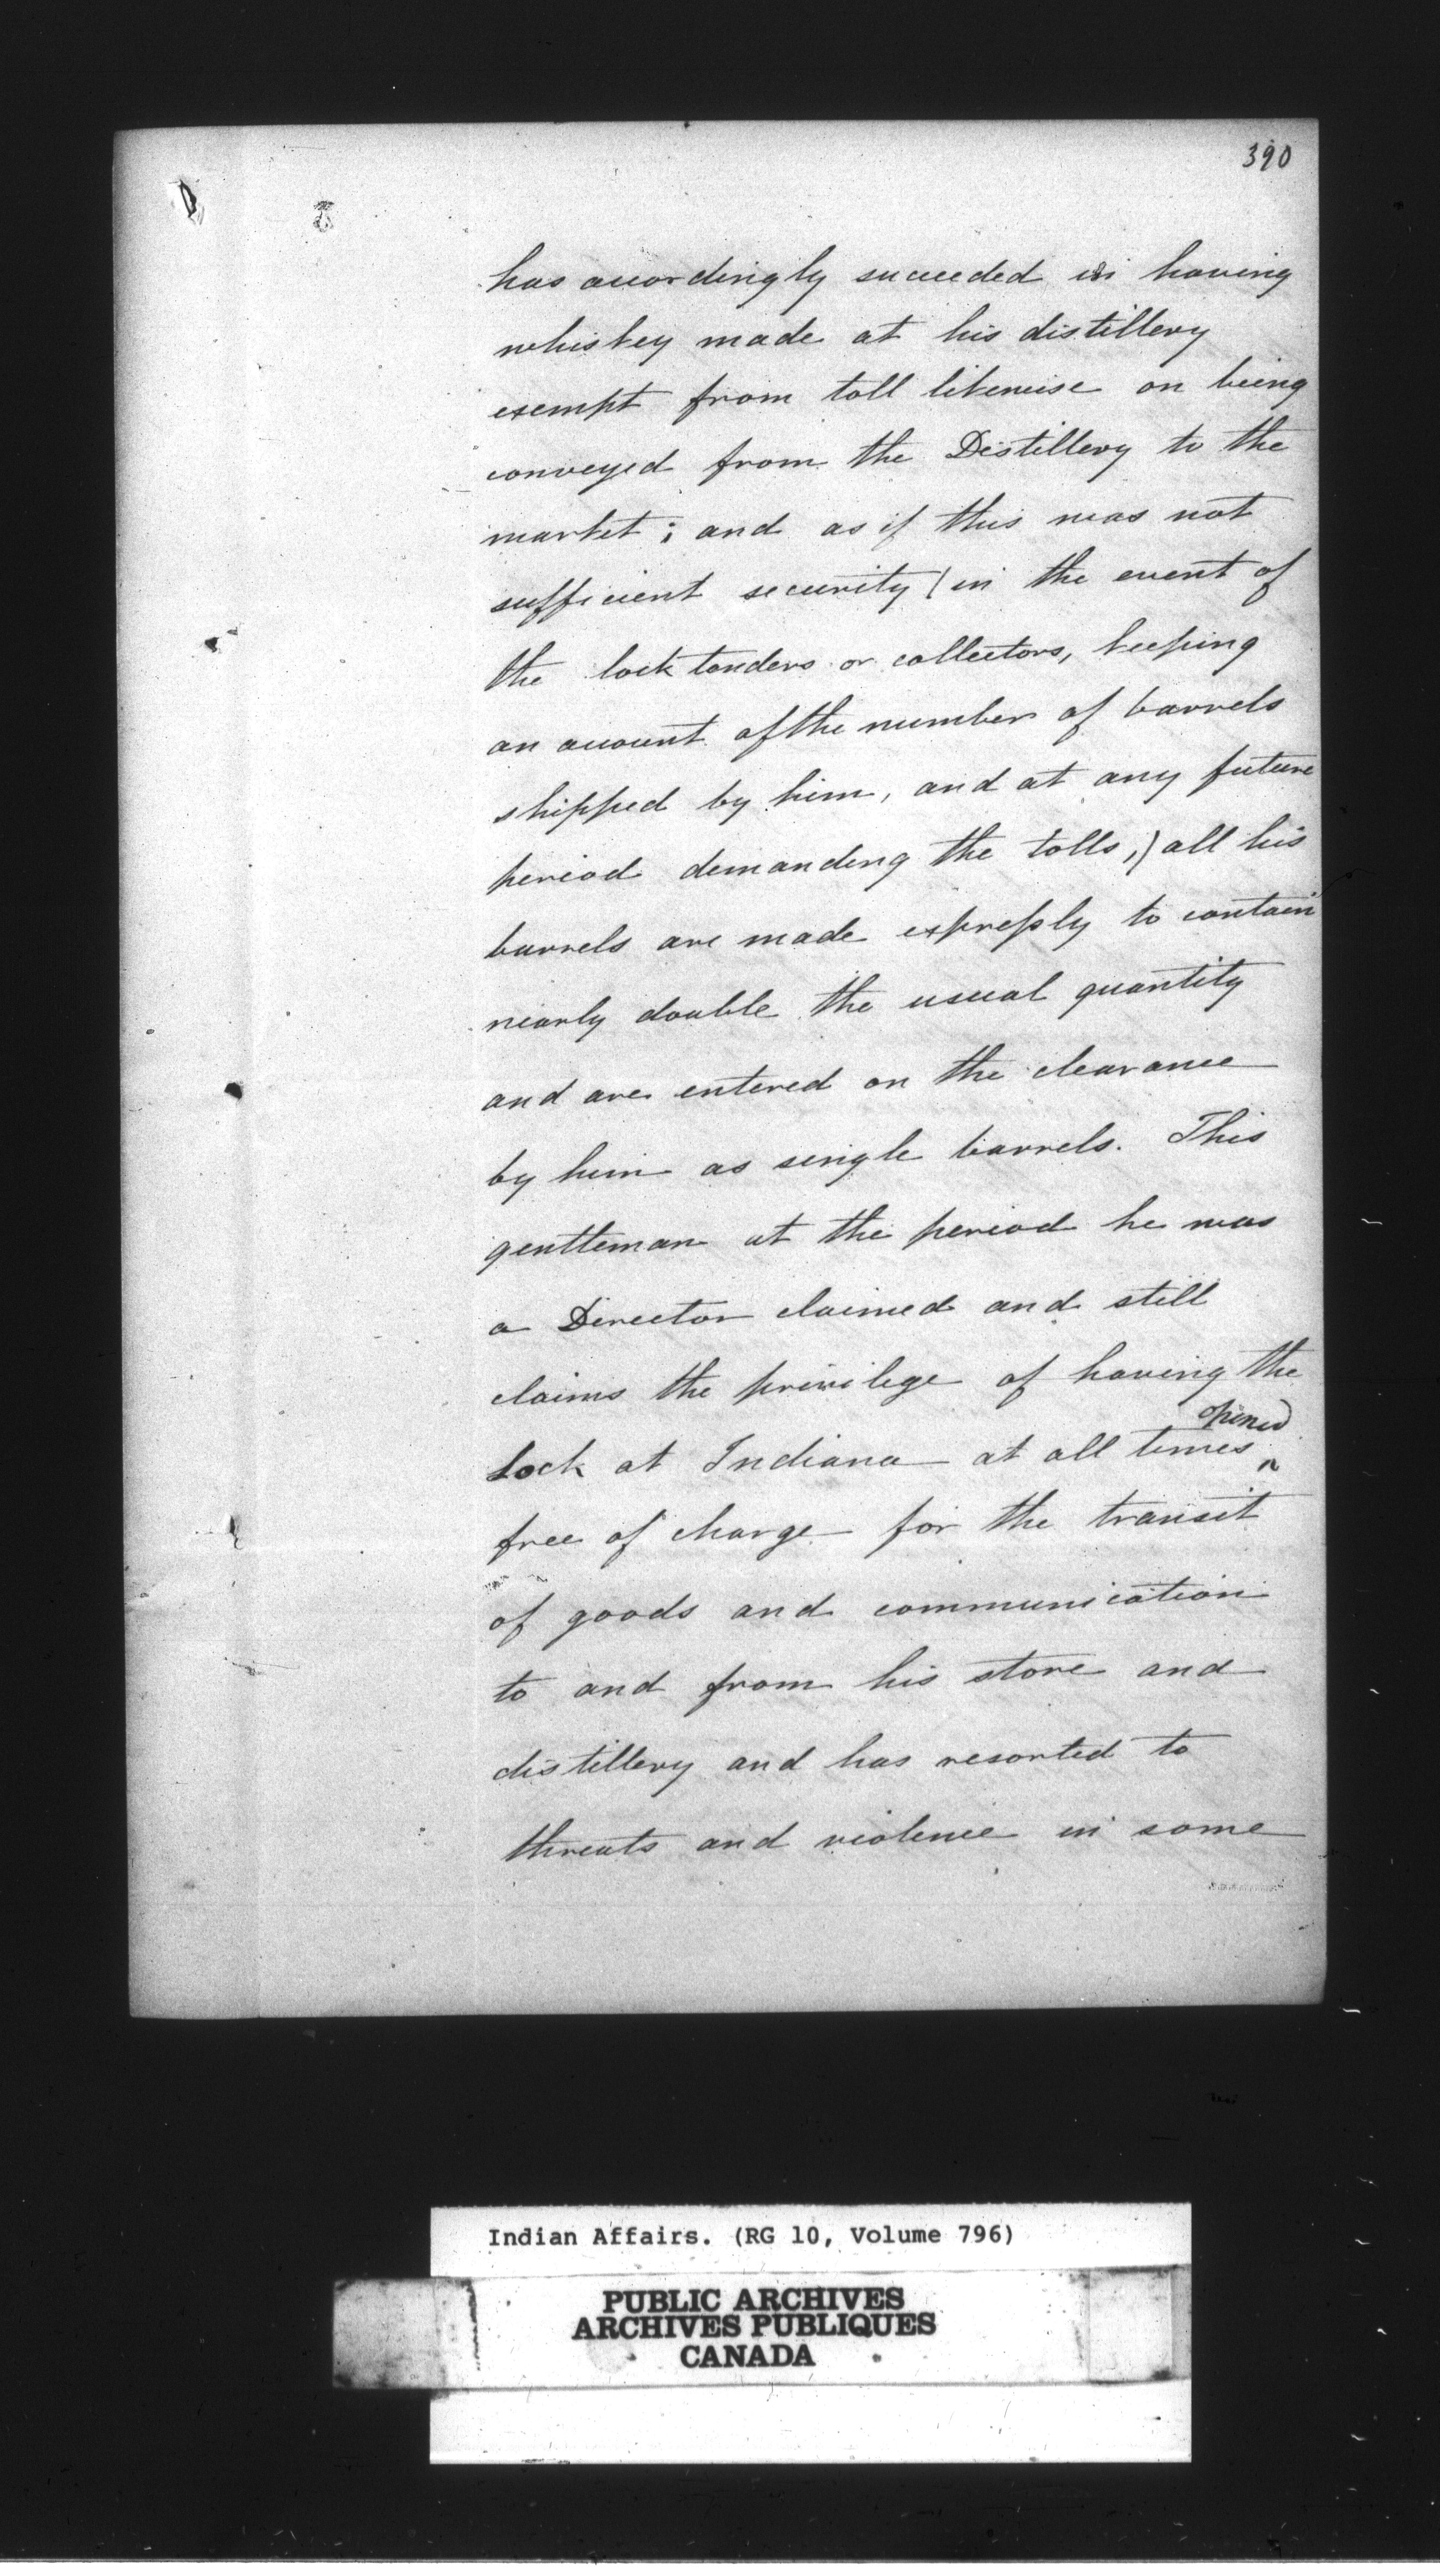 390
has accordingly succeeded in having
whiskey made at his distillery
exempt from toll likewise on being
conveyed from the Distillery to the
market; and as if this was not
sufficient security (in the event of
the lock tenders or collectors, keeping
an account of the number of barrels
shipped by him, and at any future
period demanding the tolls,) all his
barrels are made expressly to contain
nearly double the usual quantity
and are entered on the clearance
by him as single barrels. This
gentleman at the period he was
a Director claimed and still
claims the privilege of having the
opened
Lock at Indiana at all times ^
free of charge for the transit
of goods and communication
to and from his store and
distillery and has resorted to
threats and violence in some
Indian Affairs. (RG 10, Volume 796)
PUBLIC ARCHIVES
ARCHIVES PUBLIQUES
CANADA